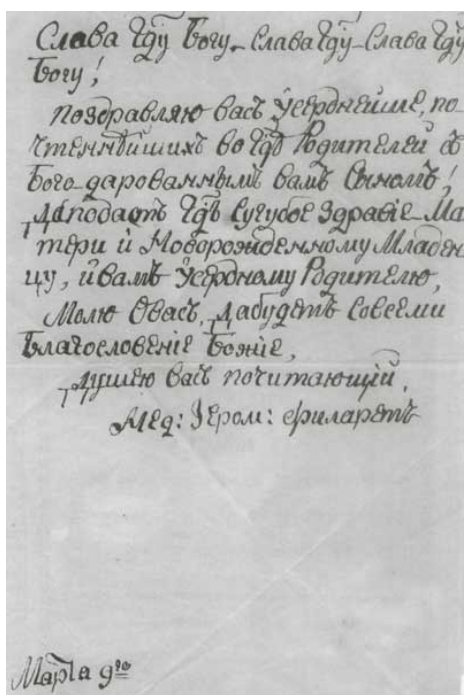 Слава Гдꙋ Богу. Слава Гдꙋ. Слава Гдꙋ
Богу!
Поздравляю васъ Усерднейше, по-
чтеннѣйшихъ во Гдѣ Родителей съ
Бого-дарованнымъ вамъ Сыномъ!
Да подастъ Гдь Сугубое Здравіе Ма
тери и Новорожденному Младен
цу, и вамъ Усердному Родителю,
Молю О васъ, да будетъ Совсеми
Благословеніе Божіе,
Душею васъ почитающій,
Мед: Іером: Филаретъ
Марта 9го